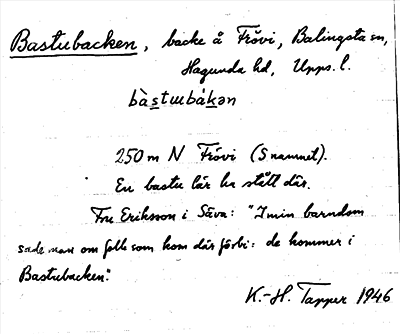 Bastubacken, backe å Frövi, Balingsta sn,
Hagunda hd, Upps. l.
bàstuubákən
250 m N Frövi (Snamnet).
En bastu lär ha stått där.
Fru Eriksson i Säva: "I min barndom
sade man om folk som kom där förbi: de kommer i
Bastubacken."
K.-H. Tapper 1946